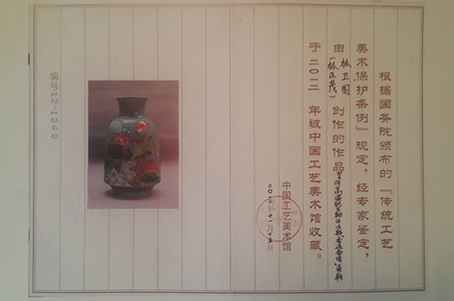 根据国务院颁布的『传统工艺
美术保护条例』规定，经专家鉴定，
由林卫国
（林正茂）
创作的作品
于二〇一二年被中国工艺美术馆收藏。
中国工艺美术馆
二〇一二年十一月十五日
编号12-1249